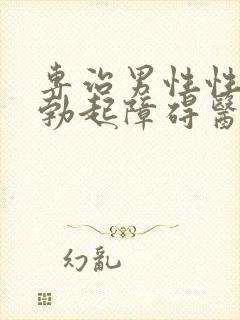 專治男性性
勃起障碍醫
幻亂